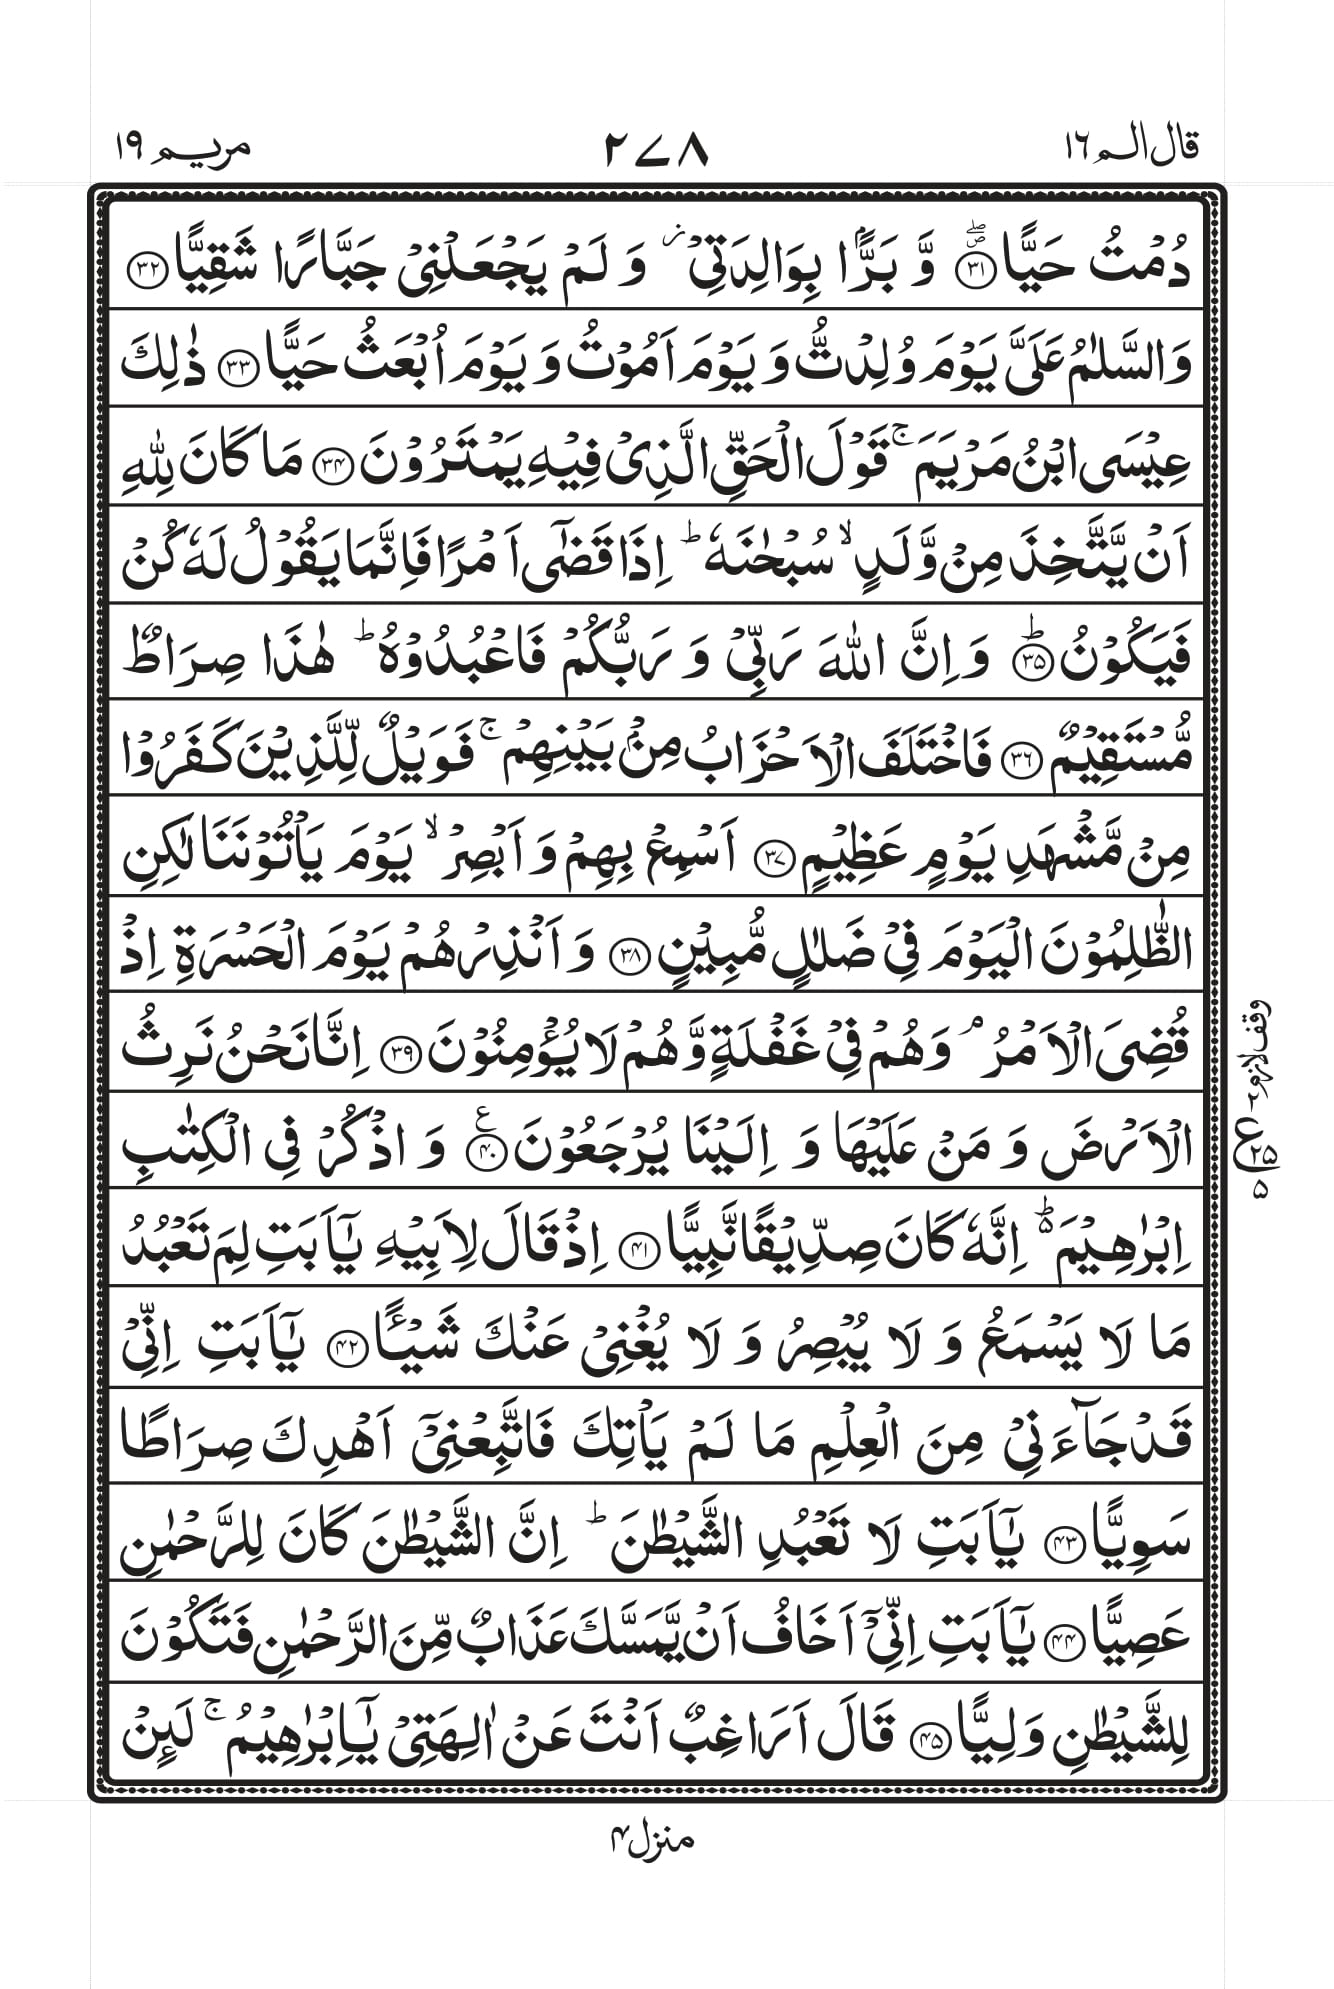 قال الم ١٦ ٢٧٨ مريم ١٩
دُمۡتُ حَيًّا ﴿۳۱﴾ۖ وَّ بَرًّۢا بِوَالِدَتِىۡ ز وَ لَمۡ يَجۡعَلۡنِىۡ جَبَّارًا شَقِيًّا ﴿۳۲﴾
وَالسَّلٰمُ عَلَىَّ يَوۡمَ وُلِدْتُّ وَ يَوۡمَ اَمُوۡتُ وَ يَوۡمَ اُبۡعَثُ حَيًّا ﴿۳۳﴾ ذٰ لِكَ
عِيۡسَى ابۡنُ مَرۡيَمَ‌ ۚ قَوۡلَ الۡحَـقِّ الَّذِىۡ فِيۡهِ يَمۡتَرُوۡنَ ﴿۳۴﴾ مَا كَانَ لِلّٰهِ
اَنۡ يَّتَّخِذَ مِنۡ وَّلَدٍۙ‌ سُبۡحٰنَهٗ‌ؕ اِذَا قَضٰٓى اَمۡرًا فَاِنَّمَا يَقُوۡلُ لَهٗ كُنۡ
فَيَكُوۡنُؕ ﴿۳۵﴾ وَاِنَّ اللّٰهَ رَبِّىۡ وَ رَبُّكُمۡ فَاعۡبُدُوۡهُ‌ؕ هٰذَا صِرَاطٌ
مُّسۡتَقِيۡمٌ ﴿۳۶﴾ فَاخۡتَلَفَ الۡاَحۡزَابُ مِنۡۢ بَيۡنِهِمۡ‌ۚ فَوَيۡلٌ لِّـلَّذِيۡنَ كَفَرُوۡا
مِنۡ مَّشۡهَدِ يَوۡمٍ عَظِيۡمٍ ﴿۳۷﴾ اَسۡمِعۡ بِهِمۡ وَاَبۡصِرۡۙ يَوۡمَ يَاۡتُوۡنَنَا‌ لٰـكِنِ
الظّٰلِمُوۡنَ الۡيَوۡمَ فِىۡ ضَلٰلٍ مُّبِيۡنٍ ﴿۳۸﴾ وَاَنۡذِرۡهُمۡ يَوۡمَ الۡحَسۡرَةِ اِذۡ
قُضِىَ الۡاَمۡرُ‌ۘ وَهُمۡ فِىۡ غَفۡلَةٍ وَّهُمۡ لَا يُؤۡمِنُوۡنَ ﴿۳۹﴾ اِنَّا نَحۡنُ نَرِثُ
الۡاَرۡضَ وَمَنۡ عَلَيۡهَا وَ اِلَيۡنَا يُرۡجَعُوۡنَ ﴿۴۰﴾ ع وَاذۡكُرۡ فِى الۡكِتٰبِ
اِبۡرٰهِيۡمَ‌ؕ ۵ اِنَّهٗ كَانَ صِدِّيۡقًا نَّبِيًّا ﴿۴۱﴾ اِذۡ قَالَ لِاَبِيۡهِ يٰۤاَبَتِ لِمَ تَعۡبُدُ
مَا لَا يَسۡمَعُ وَلَا يُبۡصِرُ وَ لَا يُغۡنِىۡ عَنۡكَ شَيۡــًٔـا ﴿۴۲﴾ يٰۤاَبَتِ اِنِّىۡ
قَدۡ جَآءَنِىۡ مِنَ الۡعِلۡمِ مَا لَمۡ يَاۡتِكَ فَاتَّبِعۡنِىۡۤ اَهۡدِكَ صِرَاطًا
سَوِيًّا ﴿۴۳﴾ يٰۤاَبَتِ لَا تَعۡبُدِ الشَّيۡطٰنَ‌ؕ اِنَّ الشَّيۡطٰنَ كَانَ لِلرَّحۡمٰنِ
عَصِيًّا ﴿۴۴﴾ يٰۤاَبَتِ اِنِّىۡۤ اَخَافُ اَنۡ يَّمَسَّكَ عَذَابٌ مِّنَ الرَّحۡمٰنِ فَتَكُوۡنَ
لِلشَّيۡطٰنِ وَلِيًّا ﴿۴۵﴾ قَالَ اَرَاغِبٌ اَنۡتَ عَنۡ اٰلِهَتِىۡ يٰۤاِبۡرٰهِيۡمُ‌ۚ لَٮِٕنۡ
وقف لازم
ع ٢٥ ۵
منزل ۴